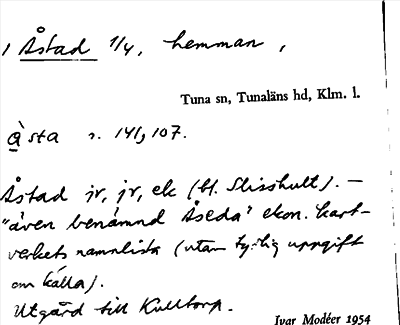 1 Åstad 1/4, hemman,
Tuna sn, Tunaläns hd, Klm. l.
Åsta s. 141, 107.
Åstad jr, jr, ek (bl. Slisshult). –
"även benämnd Åseda" ekon. kart-
verkets namnlista (utan tydlig uppgift
om källa).
Utgård till Kulltorp.
Ivar Modéer 1954